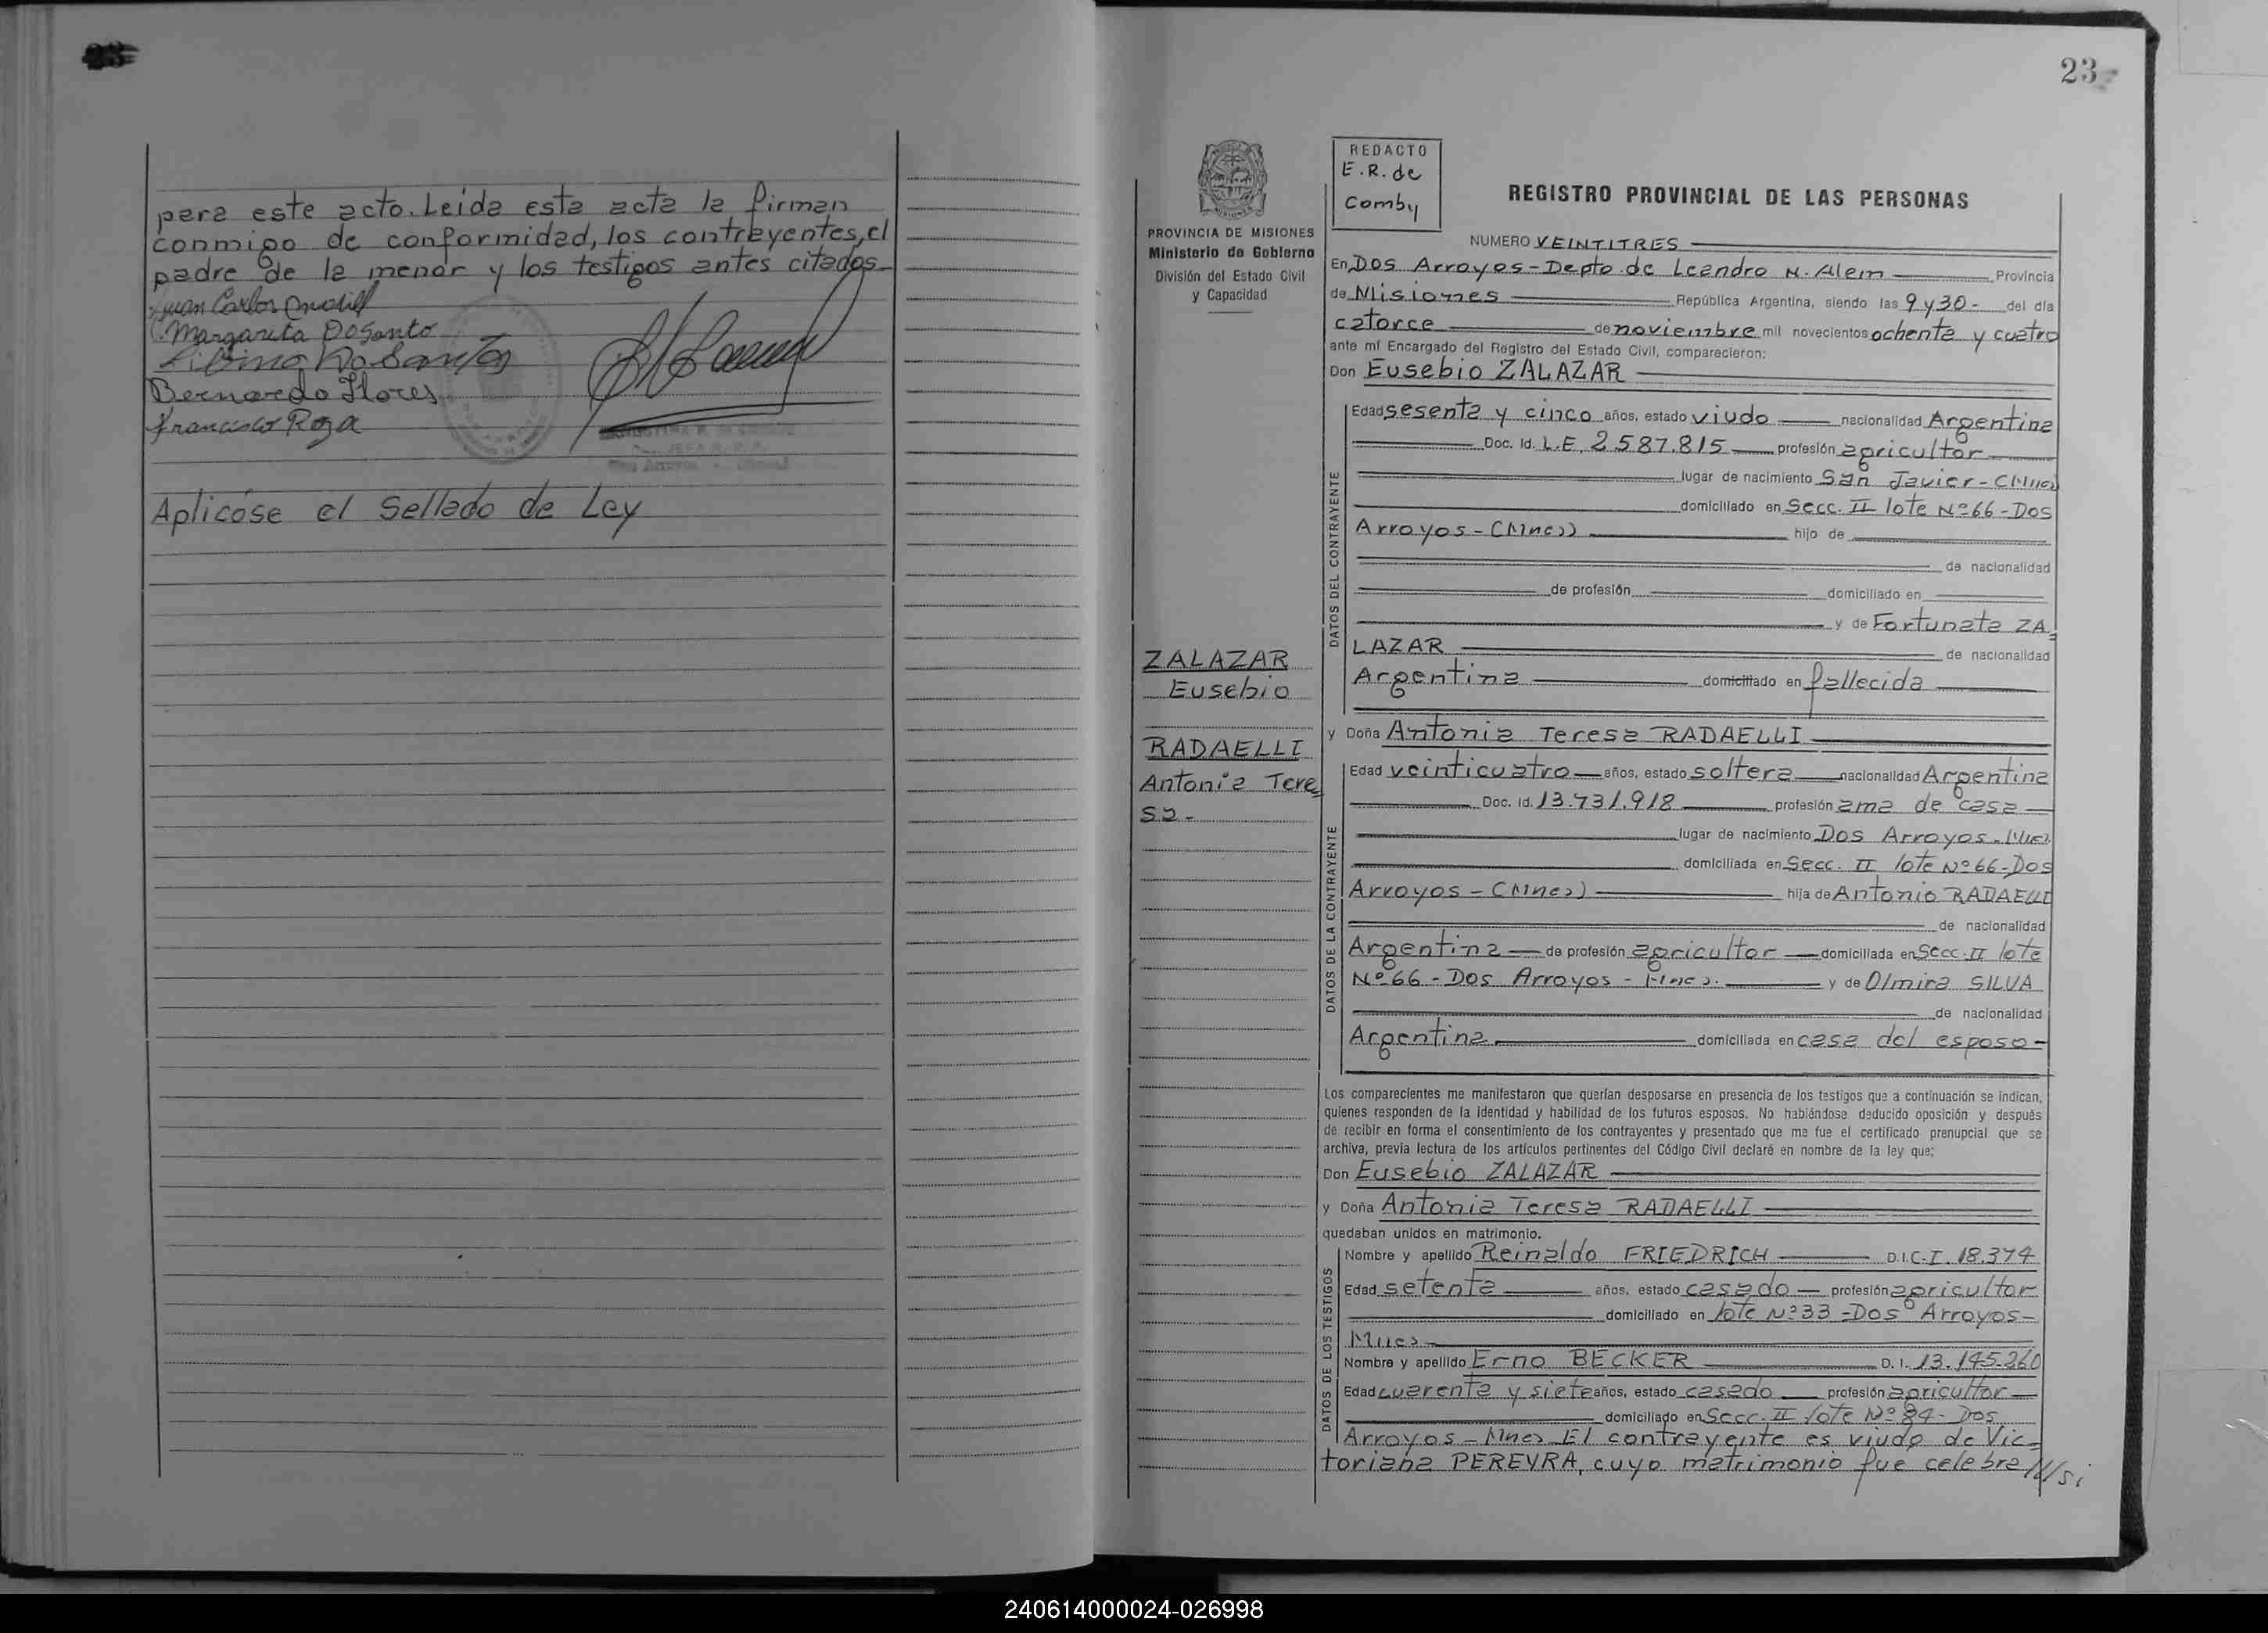 para este acto. Leida esta acta la firman
conmigo de conformidad, los contrayentes, el
padre de la menor y los testigos antes citados
Juan Carlos
Margarita Dosanto
Bernardo Flores
Francisco Roga
Aplicóse el Sellado de Ley
23
REDACTO
E.R. de
Comby
REGISTRO PROVINCIAL DE LAS PERSONAS
PROVINCIA DE MISIONES
Ministerio de Gobierno
División del Estado Civil
y Capacidad
NUMERO VEINTITRES
En Dos Arroyos - Depto. de Leandro N. Alem Provincia
de Misiones República Argentina, siendo las 9 y 30 - del día
catorce de noviembre mil novecientos ochenta y cuatro
ante mí Encargado del Registro del Estado Civil, comparecieron:
Don Eusebio ZALAZAR
DATOS DEL CONTRAYENTE
Edad sesenta y cinco años, estado viudo nacionalidad Argentina
Doc. Id. L.E. 2.587.815 profesión agricultor
lugar de nacimiento San Javier - (Mnes)
domiciliado en Secc. II lote Nº 66 - Dos
Arroyos - (Mnes) hijo de
de nacionalidad
de profesión domiciliado en
y de Fortunata ZA
LAZAR de nacionalidad
Argentina domiciliado en fallecida
ZALAZAR
Eusebio
RADAELLI
Antonia Tere
sa -
y Doña Antonia Teresa RADAELLI
DATOS DE LA CONTRAYENTE
Edad veinticuatro años, estado soltera nacionalidad Argentina
Doc. Id. 13.731.918 profesión ama de casa
lugar de nacimiento Dos Arroyos - Mnes
domiciliada en Secc. II lote Nº 66 - Dos
Arroyos - (Mnes) hija de Antonio RADAELLI
de nacionalidad
Argentina de profesión agricultor domiciliada en Secc. II lote
Nº 66 - Dos Arroyos - Mnes. y de Olmira SILVA
de nacionalidad
Argentina domiciliada en casa del esposo -
Los comparecientes me manifestaron que querían desposarse en presencia de los testigos que a continuación se indican,
quienes responden de la identidad y habilidad de los futuros esposos. No habiéndose deducido oposición y después
de recibir en forma el consentimiento de los contrayentes y presentado que me fue el certificado prenupcial que se
archiva, previa lectura de los artículos pertinentes del Código Civil declaré en nombre de la ley que:
Don Eusebio ZALAZAR
y Doña Antonia Teresa RADAELLI
quedaban unidos en matrimonio.
DATOS DE LOS TESTIGOS
Nombre y apellido Reinaldo FRIEDRICH D.I.C.I. 18.374
Edad setenta años, estado casado profesión agricultor
domiciliado en lote Nº 33 - Dos Arroyos -
Mnes
Nombre y apellido Erno BECKER D.I. 13.145.260
Edad cuarenta y siete años, estado casado profesión agricultor
domiciliado en Secc. II lote Nº 84 - Dos
Arroyos - Mnes El contrayente es viudo de Vic
toriana PEREYRA, cuyo matrimonio fue celebra ///si
240614000024-026998